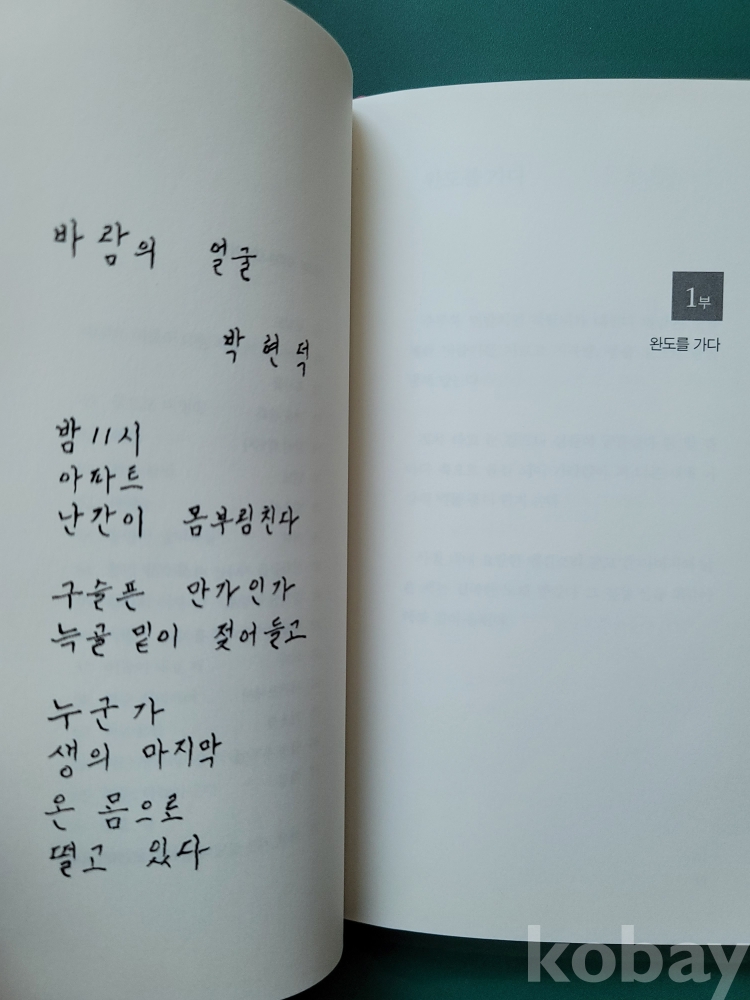 바람의 얼굴
박현덕
밤 11시
아파트
난간이 몸부림친다
구슬픈 만가인가
늑골 밑이 젖어들고
누군가
생의 마지막
온 몸으로
떨고 있다
1부
완도를 가다
kobay